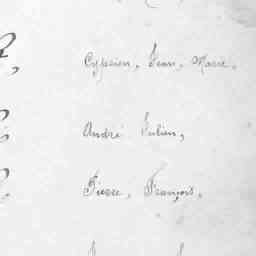 Cyprien, Jean, Marie,
André Julien,
Pierre, François,